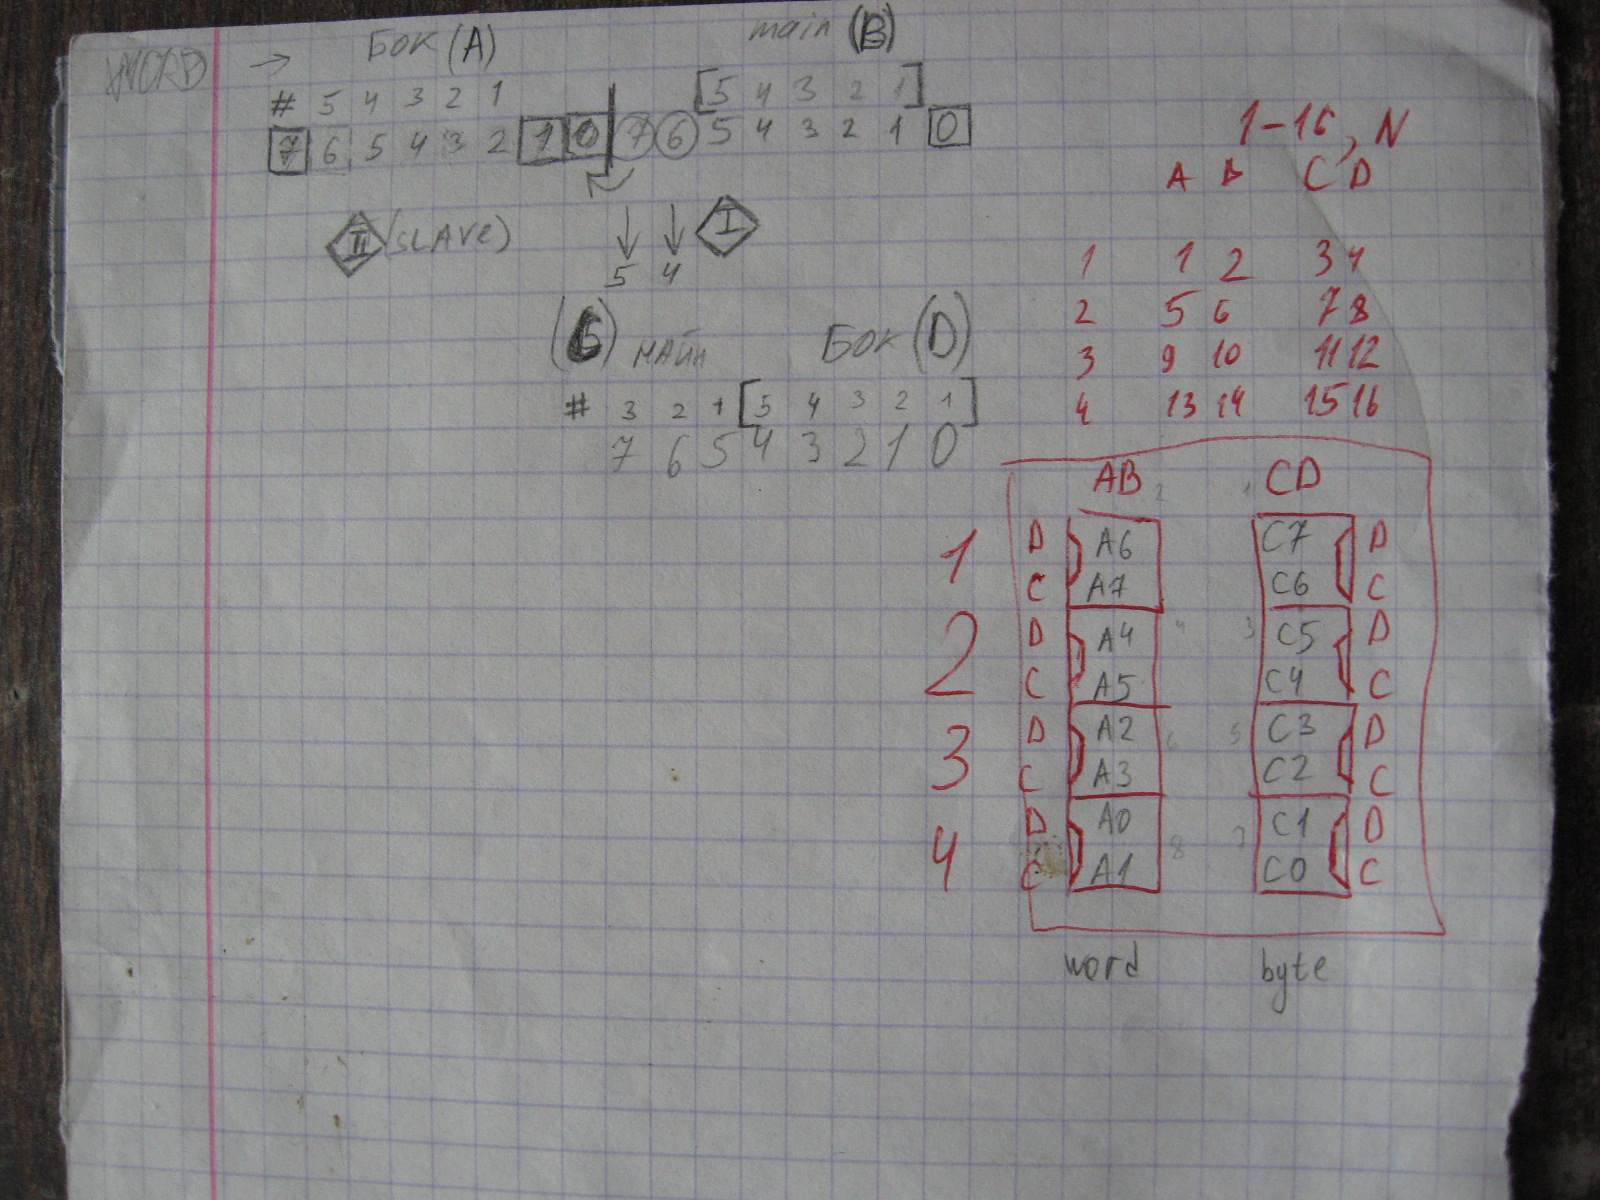 WORD → БОК (A) main (B)
# 5 4 3 2 1 [5 4 3 2 1]
7 6 5 4 3 2 1 0 7 6 5 4 3 2 1 0
II (SLAVE) I
5 4
(C) МАЙН БОК (D)
# 3 2 1 [5 4 3 2 1]
7 6 5 4 3 2 1 0
1-16, N
A B C D
1 1 2 3 4
2 5 6 7 8
3 9 10 11 12
4 13 14 15 16
AB 2 1 CD
1 D A6 C7 D
C A7 C6 C
2 D A4 4 3 C5 D
C A5 C4 C
3 D A2 6 5 C3 D
C A3 C2 C
4 D A0 8 7 C1 D
C A1 C0 C
word byte